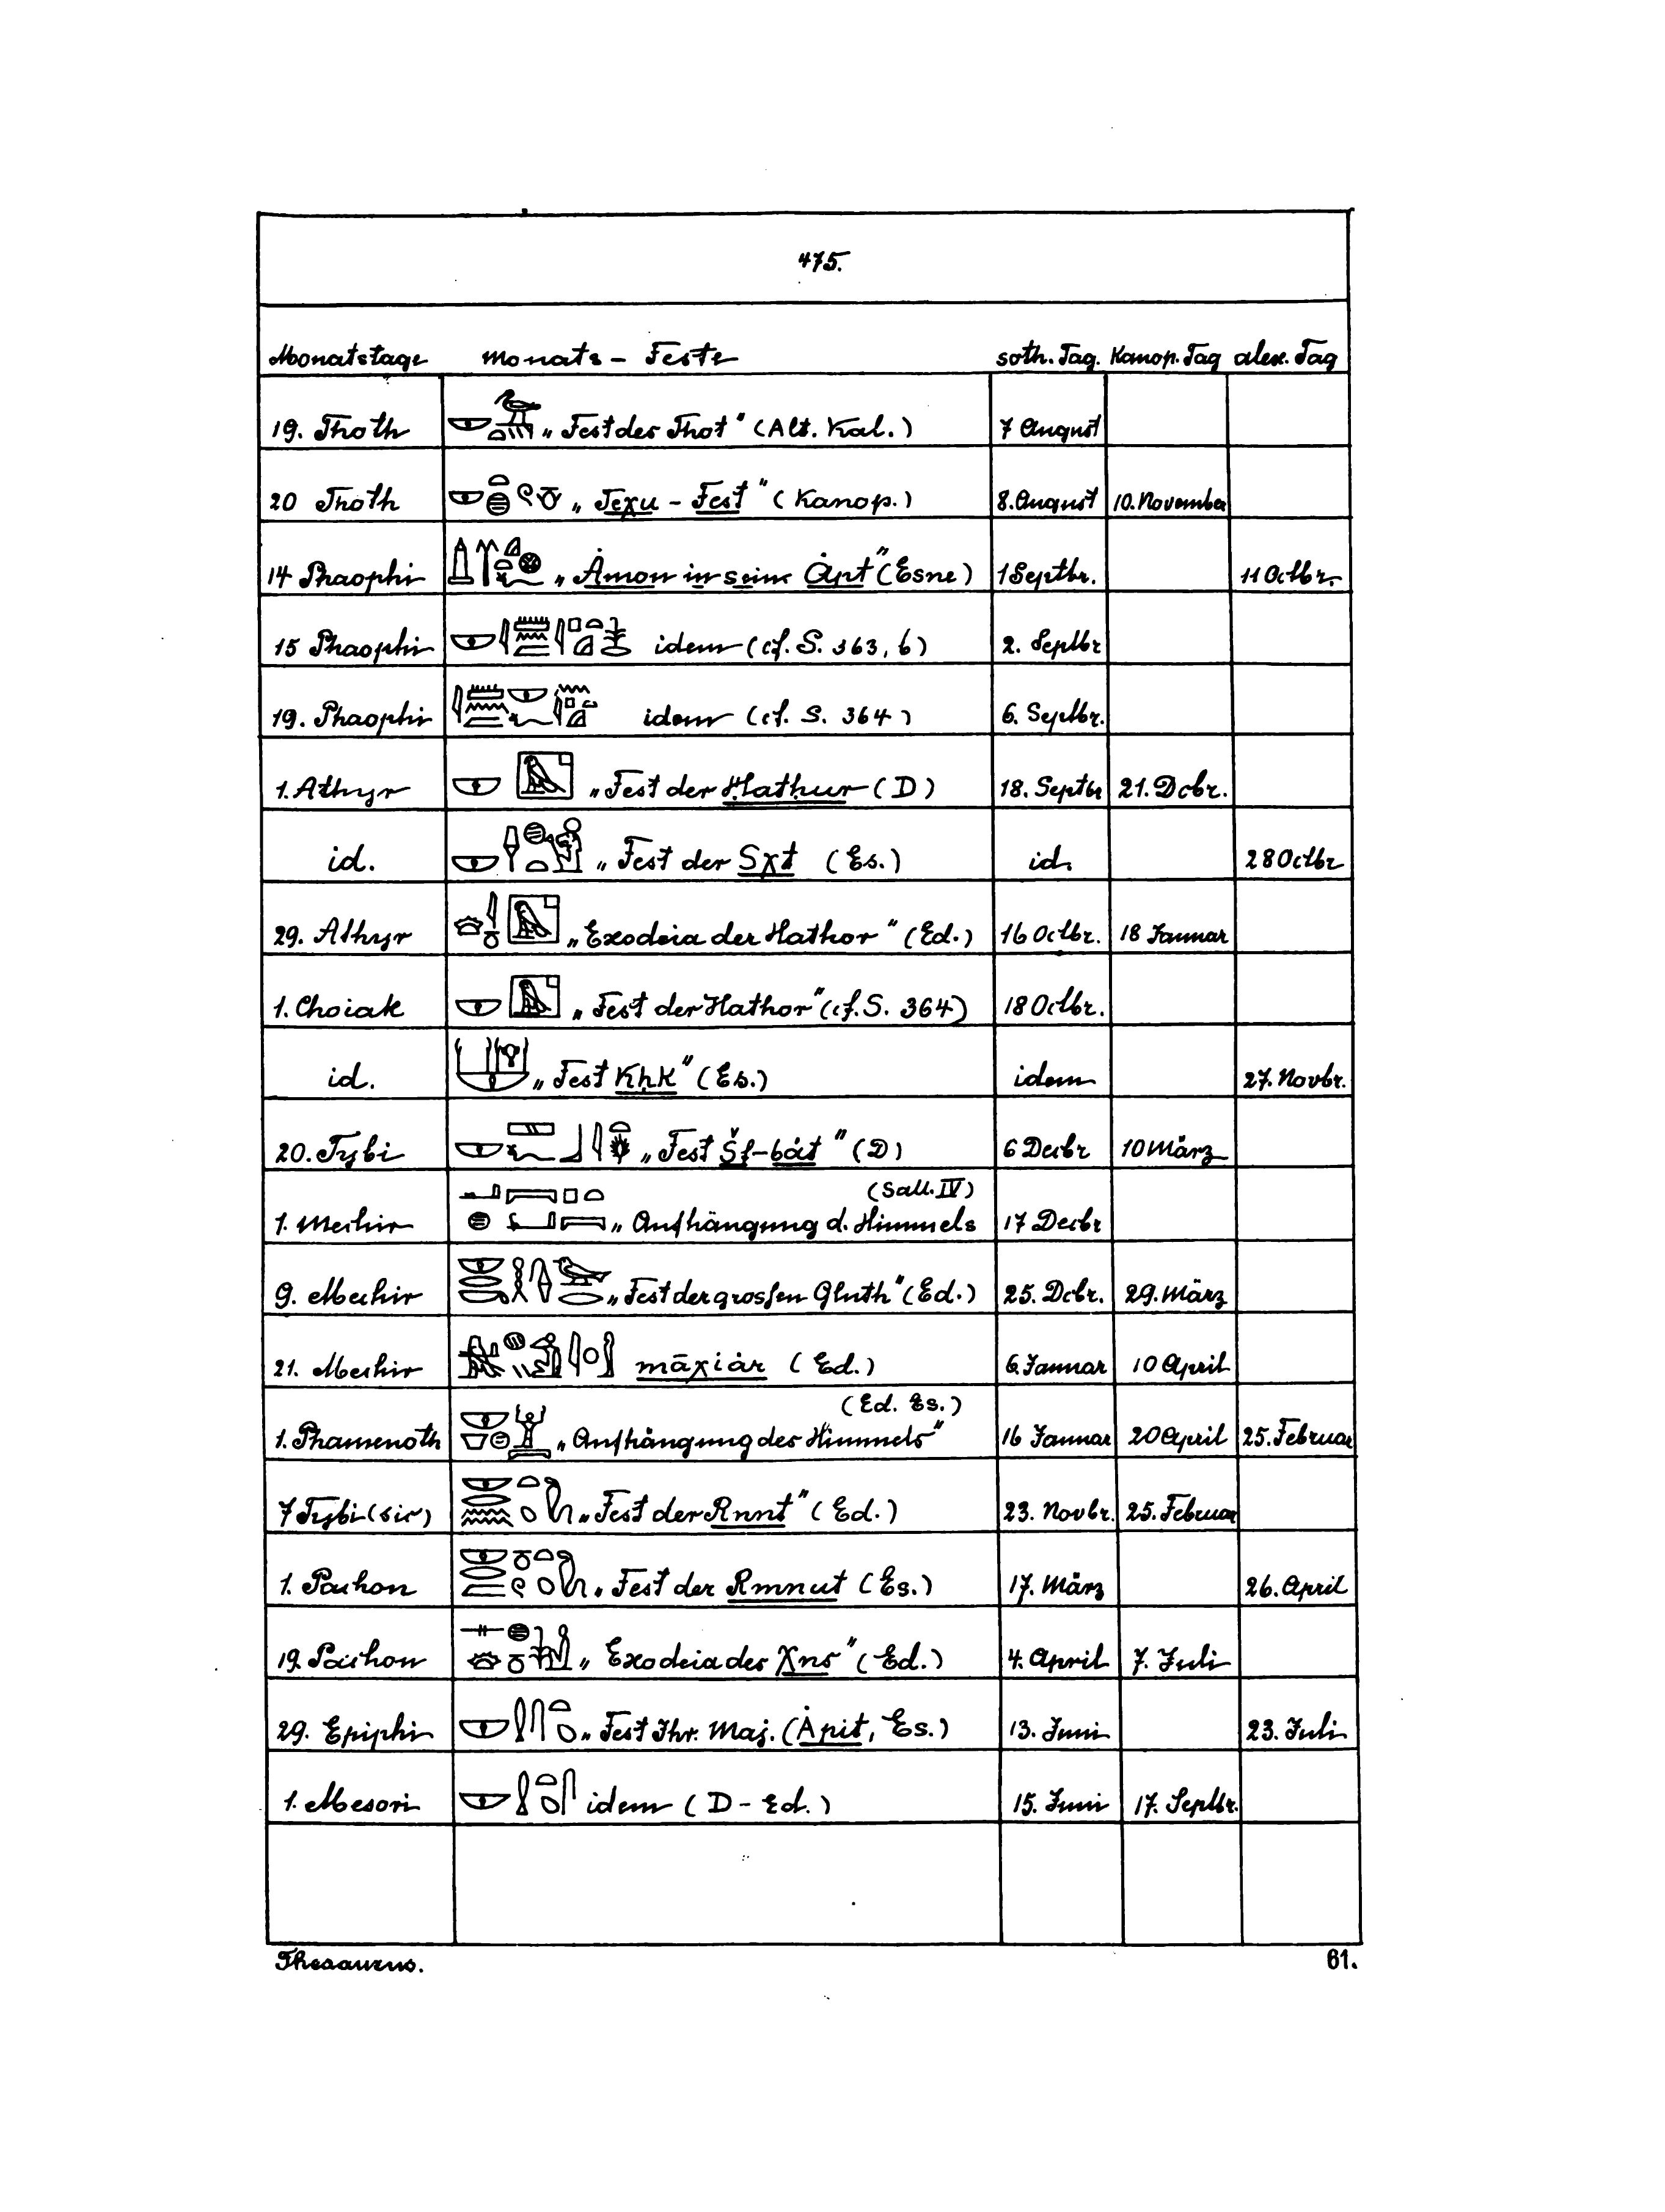 475.
Monatstage Monats - Feste soth. Tag. Kanop. Tag alex. Tag
19. Thoth „Fest des Thot" (Alt. Kal.) 7 August
20 Thoth „Texu - Fest" (Kanop.) 8. August 10. November
14 Phaophi „Ȧmon in seine Ȧpt" (Esne) 1 Septbr. 11 Octbr.
15 Phaophi idem (cf. S. 363, 6) 2. Septbr
19. Phaophi idem (cf. S. 364) 6. Septbr.
1. Athyr „Fest der Hathur (D) 18. Septbr 21. Dcbr.
id. „Fest der Sχt (Es.) id. 28 Octbr
29. Athyr „Exodeia der Hathor" (Ed.) 16 Octbr. 18 Januar
1. Choiak „Fest der Hathor" (cf. S. 364) 18 Octbr.
id. „Fest Khk" (Es.) idem 27. Novbr.
20. Tybi „Fest Šf-bȧt" (D) 6 Decbr 10 März
(Sall. IV)
1. Mechir „Aufhängung d. Himmels 17 Decbr
9. Mechir „Fest der grossen Gluth" (Ed.) 25. Dcbr. 29. März
21. Mechir māχiȧr (Ed.) 6. Januar 10 April
(Ed. Es.)
1. Phamenoth „Aufhängung des Himmels" 16 Januar 20 April 25. Februar
7 Tybi (sic) „Fest der Rnnt" (Ed.) 23. Novbr. 25. Februar
1. Pachon „Fest der Rmnut (Es.) 17. März 26. April
19. Pachon „Exodeia des Χns" (Ed.) 4. April 7. Juli
29. Epiphi „Fest Ihr. Maj. (Ȧpit, Es.) 13. Juni 23. Juli
1. Mesori idem (D - Ed.) 15. Juni 17. Septbr.
Thesaurus. 61.